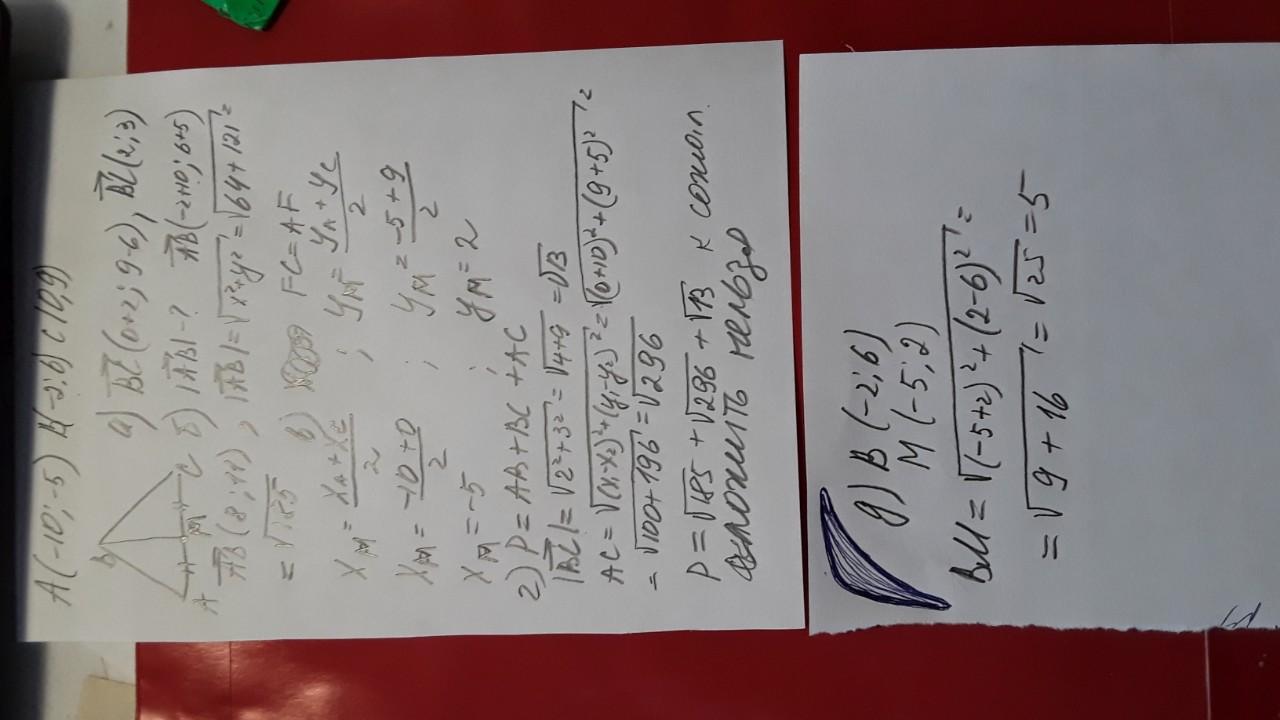 A(-10; -5) B(-2; 6) C(0; 9)
B
A M C
а) BC (0+2; 9-6), BC (2; 3)
б) |AB| -? AB (-2+10; 6+5)
AB (8; 11), |AB| = √x²+y² = √64+121 =
= √185
в) FC = AF
Xм = XA + XC / 2 ; Yм = YA + YC / 2
Xм = -10 + 0 / 2 ; Yм = -5 + 9 / 2
Xм = -5 ; Yм = 2
2) P = AB + BC + AC
|BC| = √2²+3² = √4+9 = √13
AC = √(x₁-x₂)²+(y₁-y₂)² = √(0+10)²+(9+5)² =
= √100+196 = √296
P = √185 + √296 + √13 к сожал.
сложить нельзя
д) B (-2; 6)
M (-5; 2)
BM = √(-5+2)² + (2-6)² =
= √9 + 16 = √25 = 5